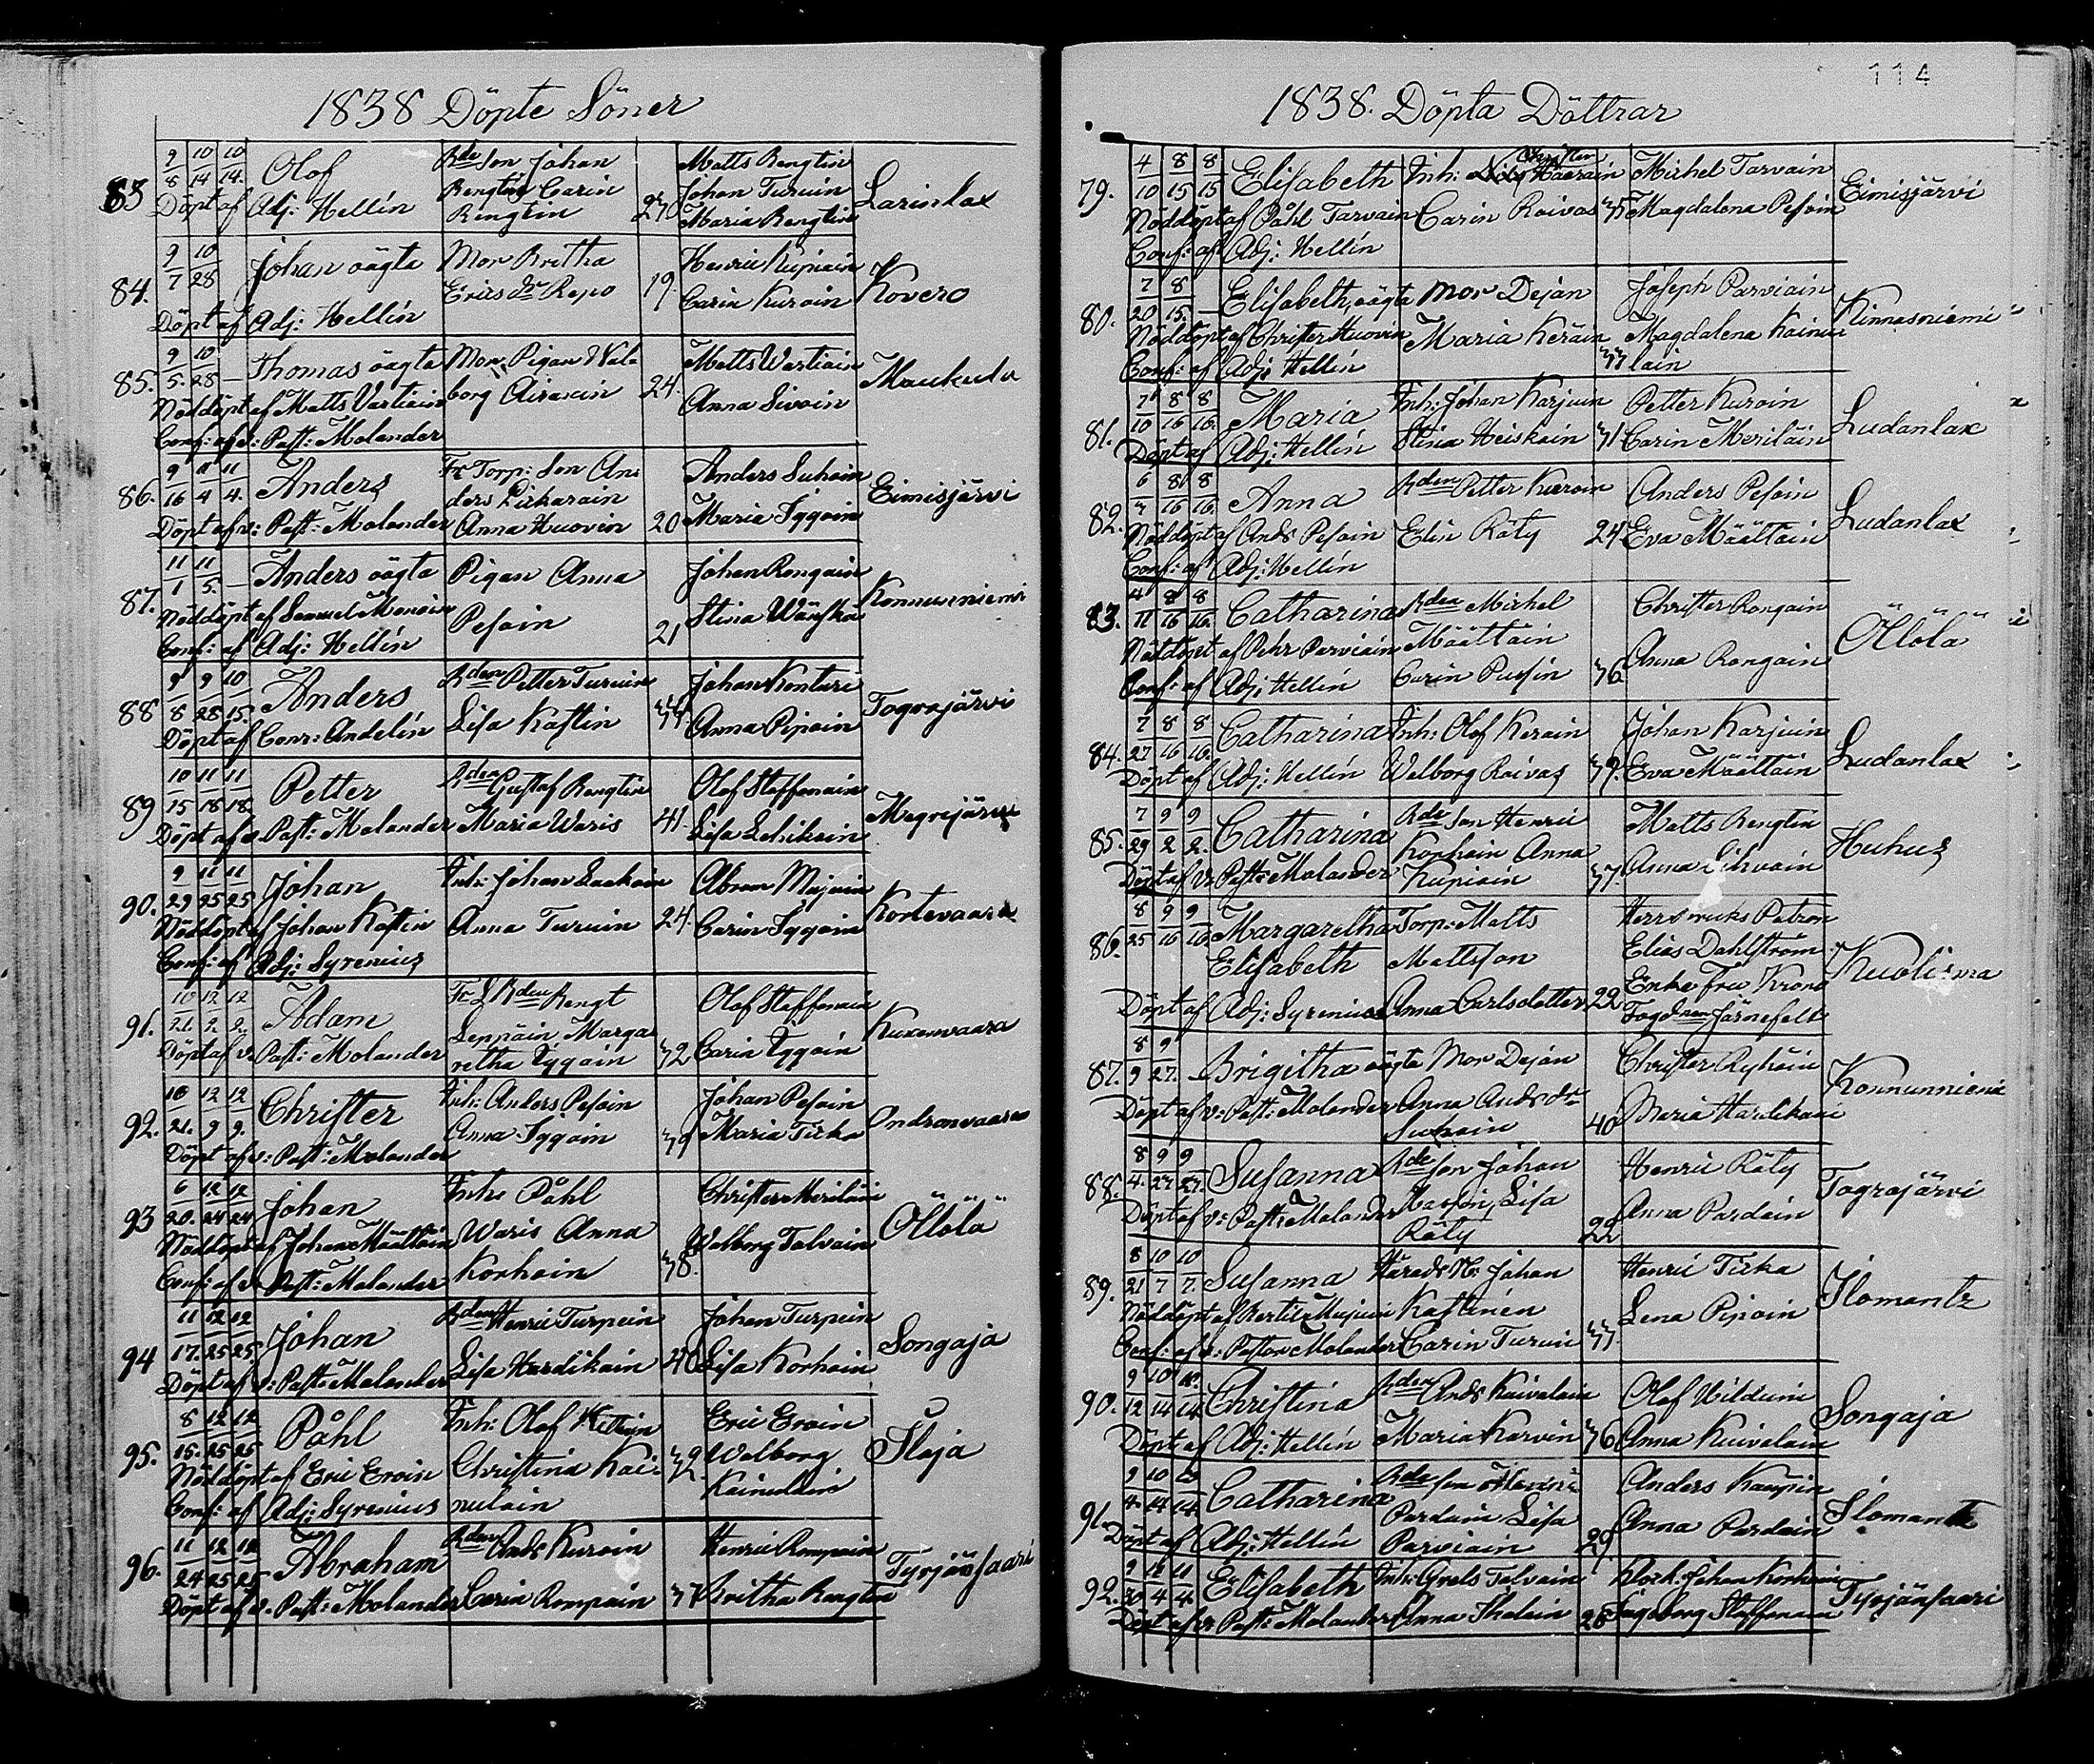 1838 Döpte Söner
83
9/8 10/14 10/14. Olof
Döpt af Adj: Hellín
Rde Son Johan
Bengtin Carin
Rengtin
Matts Rengtin
Johan Turuin
Maria Rengtin
Larinlax
84.
9/7 10/28 Johan oägta
Döpt af Adj: Hellín
Mor Britha
Erics dr Repo
19.
Henric Kupiain
Carin Kuroin
Kovero
85.
9/5. 10/28 — Thomas oägta
Nöddöpt af Matts Vartiain
Conf: af v: Past: Molander
Mor Pigan Wal-
borg
24.
Matts Wartiain
Anna Sivoin
Maukula
86.
9/16 11/4 11/4. Anders
Döpt af v: Past: Molander
Fr Torp: Son An-
ders
Anna Huovin
20
Anders Suhoin
Maria Iggoin
Eimisjärvi
87.
11/1 11/5. — Anders oägta
Nöddöpt af Samuel
Conf: af Adj: Hellín
Pigan Anna
Pesoin
21
Johan Rongain
Stina Wänskä
Konnunniemi
88
9/8 9/28 10/15. Anders
Döpt af Conr: Andelín
Rden Petter Turuin
Lisa Kastin
34.
Johan Konturi
Anna Piipoin
Togrojärvi
89
10/15 11/18 11/18. Petter
Döpt af v. Past: Molander
Rden Gustaf Rengtin
Maria Waris
41.
Olof Staffanain
Lisa Lehikoin
Megrijärvi
90.
9/29 11/25 11/25 Johan
Nöddöpt af Johan Kastin
Conf: af Adj: Syrenius
Inh: Johan Laakoin
Anna Turuin
24.
Abram Mujuin
Carin Iggoin
Kortevaara
91.
10/21. 12/9. 12/9. Adam
Döpt af v: Past: Molander
Fr L Rden Bengt
Leppäin Marga
retha Iggoin
32
Olof Staffanain
Carin Iggoin
Kuxenvaara
92.
10/21. 12/9 12/9. Christer
Döpt af v: Past: Molander
Inh: Anders Pesoin
Anna Iggoin
39
Johan Pesoin
Maria Ticka
Ondronvaara
93
6/20. 12/24 12/24 Johan
Nöddöpt af Johan Määttäin
Conf: af v. Past: Molander
Inh: Påhl
Waris Anna
Korhoin
38.
Christer Meriläin
Welborg Talvain
Öllölä
94
11/17. 12/25 12/25 Johan
Döpt af v: Past: Molander
Rden Henric Turpein
Lisa Hardikain
40
Johan Turpein
Lisa Korhoin
Songaja
95.
8/15. 12/25 12/25 Påhl
Nöddöpt af Eric Eroin
Conf: af Adj: Syrenius
Inh: Olof
Christina Kai-
nulain
32.
Eric Eroin
Welborg
Kainulain
Ilaja
96.
11/24 12/25 12/25 Abraham
Döpt af v. Past: Molander
Rden Ands Kuroin
Carin Rompain
37
Henric Rompain
Britha Rengtin
Tyrjänsaari
114
1838. Döpta Döttrar
79.
4/10 8/15 8/15 Elisabeth
Nöddöpt af Påhl Tarvain
Conf: af Adj: Hellín
Christer
Inh: Haarain
Carin Roivas
35
Michel Tarvain
Magdalena Pesoin
Eimisjärvi
80.
7/20 8/15. — Elisabeth, oägta
Nöddöpt af Christer Huovin
Conf: af Adj: Hellín
Mor Dejan
Maria Keräin
37
Joseph Parviain
Magdalena Kainu
lain
Kinnasniemi
81.
7/10 8/16 8/16. Maria
Döpt af Adj: Hellín
Inh: Johan Karjuin
Stina Heiskain
31
Petter Kuroin
Carin Meriläin
Ludanlax
82.
6/7 8/16 8/16. Anna
Nöddöpt af Ands Pesoin
Conf: af Adj: Hellín
Rden Petter Kuroin
Elin Räty
24
Anders Pesoin
Eva Määttäin
Ludanlax
83.
4/11 8/16 8/16. Catharina
Nöddöpt af Pehr Parviain
Conf: af Adj: Hellín
Rden Michel
Määttäin
Carin Pussin
36
Christer Rongain
Anna Rongain
Öllölä
84.
7/27 8/16 8/16. Catharina
Döpt af Adj: Hellín
Inh: Olof Kerain
Welborg Roivas
39.
Johan Karjuin
Eva Määttäin
Ludanlax
85.
7/29 9/2 9/2. Catharina
Döpt af v: Past: Molander
Rde Son Henric
Korhoin Anna
Kupiain
37.
Matts Rengtin
Anna Sihvoin
Huhus
86.
8/25 9/16 9/16 Margaretha
Elisabeth
Döpt af Adj: Syrenius
Torp: Matts
Mattsson
Anna Carlsdotter
22
Herr Bruks Patron
Elias Dahlström
Enke Fru Krono
Fogdnen Järnefelt
Kuolisma
87.
8/9 9/27. — Brigitha oägta
Döpt af v: Past: Molander
Mor Dejan
Anna Ands dr
Suhoin
40
Christer Ryhäin
Maria Hardikain
Konnunniemi
88.
8/4. 9/27. 9/27. Susanna
Döpt af v: Past: Molander
Rde Son Johan
Lisa
Räty
22
Henric Räty
Anna Pardain
Togrojärvi
89.
8/21 10/7 10/7. Susanna
Nöddöpt af Bertil Mujuin
Conf: af v: Pastor Molander
Härads N: Johan
Kastinén
Carin Turuin
37
Henric Ticka
Lena Piipoin
Ilomantz
90.
9/12 10/14 10/14 Christina
Döpt af Adj: Hellín
Rden Ands Kuivalain
Maria Karvin
36
Olof Wilduin
Anna Kuivalain
Songaja
91.
9/4. 10/14 10/14. Catharina
Döpt af Adj: Hellín
Rde Son Henric
Pardain Lisa
Parviain
29.
Anders Kaupin
Anna Pardain
Ilomantz
92.
9/30 11/4 11/4. Elisabeth
Döpt af v: Past: Molander
Inh: Grels Talvain
Anna Ihalain
28
Klock: Johan Korhoin
Ingeborg Staffanain
Tyrjänsaari